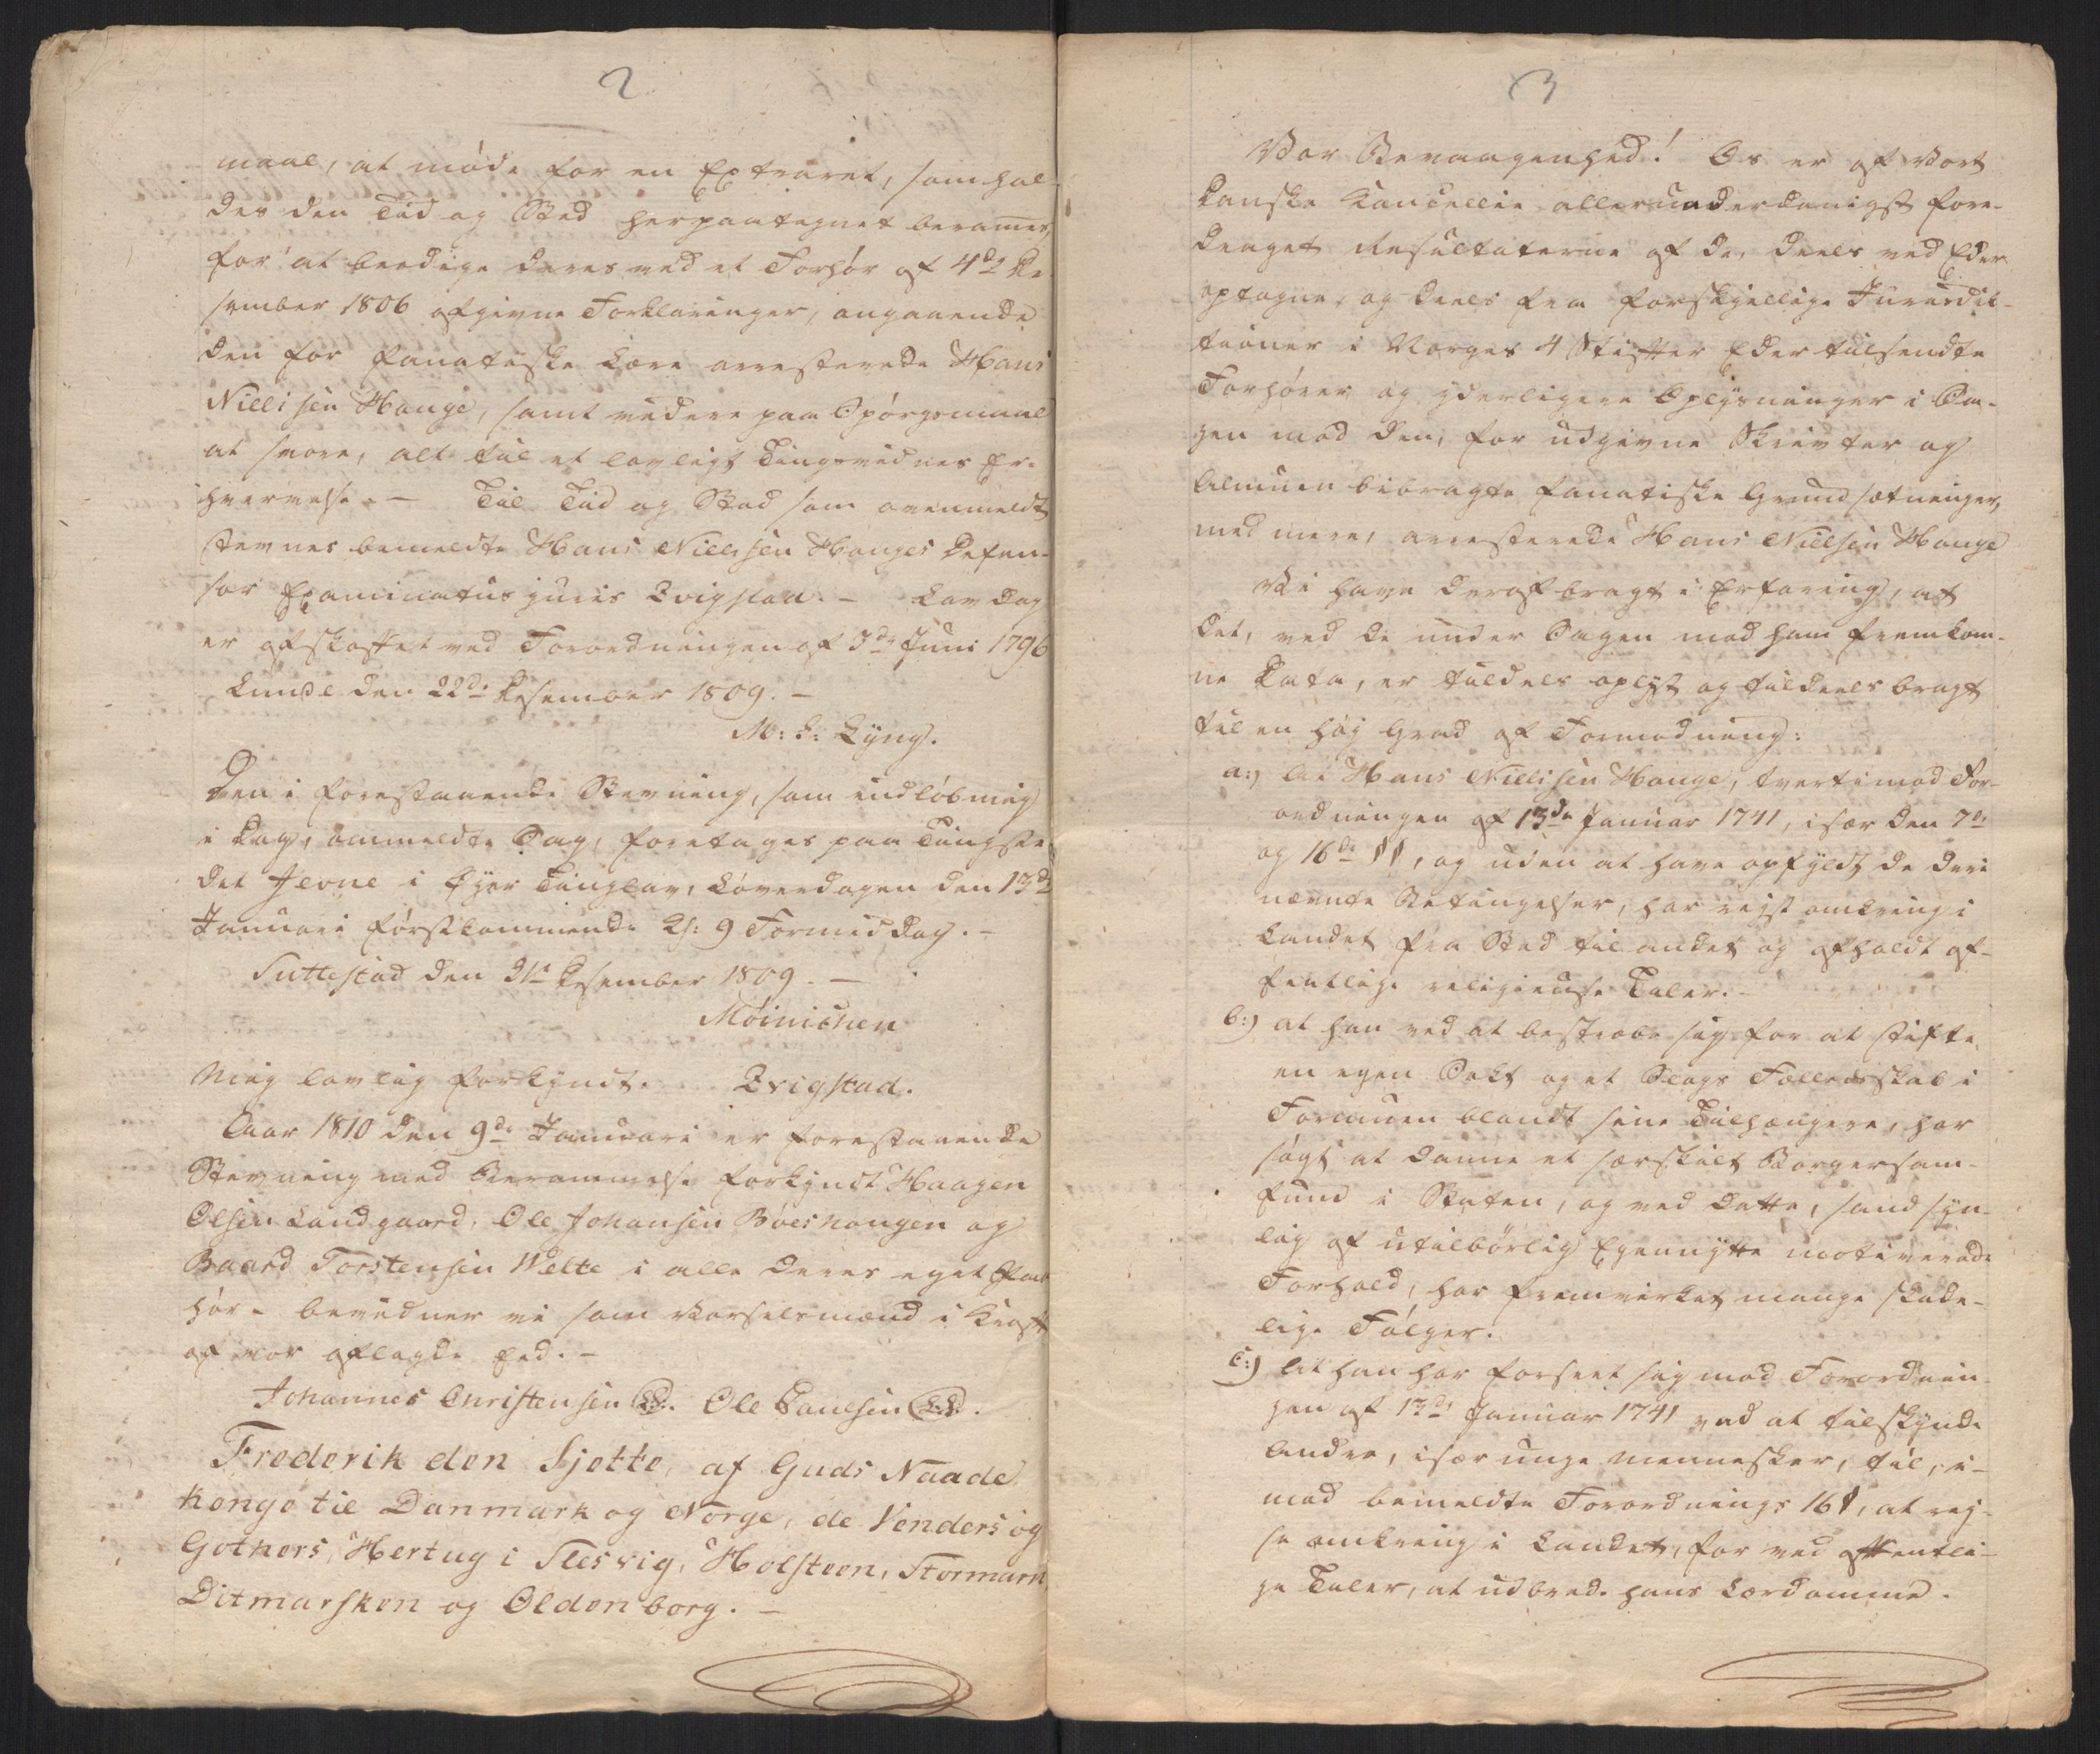 2
maal, at møde for en Extraret, som hol-
des den Tid og Sted herpaategnet berammes,
for at beedige deres ved et Forhør af 4de De-
sember 1806 afgivne Forklaringer, angaaende
den for fanatiske Lære arresterede Hans
Nielsen Hauge, samt videre paa Spørgsmaal
at svare, alt til et lovligt Tingsvidnes Er-
hvervelse. – Til Tid og Sted som ovenmeldt
stevnes bemeldte Hans Nielsen Hauges Defen-
sor Examinatus juris Evigstad. – Lavdag
er afskaffet ved Forordningen af 3de Juni 1796
Lunde den 22de Desember 1809. –
M: L: Lyng.
Den i forestaaende Stevning, som indløb mig
i Dag, ommeldte Sag, foretages paa Tingste-
det Jevne i Øyer Tinglav, Løverdagen den 13de
Januari førstkommende Kl: 9 Formiddag. –
Suttestad den 31te Desember 1809. –
Møinichen
Mig lovlig forkyndt. Evigstad.
Aar 1810 den 9de Januari er forestaaende
Stevning med Berammelse forkyndt Haagen
Olsen Landgaard, Ole Johansen Bøeshaugen og
Baard Torstensen Welte i alle deres eget Paa-
hør – bevidner vi som Varselsmænd i Kraft
af vor aflagde Eed. –
Johannes Christensen (L.S.). Ole Paulsen (L.S.).
Frederik den Sjette, af Guds Naade
Konge til Danmark og Norge, de Venders og
Gothers, Hertug i Slesvig, Holsteen, Stormarn,
Ditmarsken og Oldenborg. –
3
Vor Bevaagenhed! Os er af Vort
danske Kancellie allerunderdanigst fore-
draget Resultaterne af de, deels ved Eder
optagne, og deels fra forskjellige Jurisdik-
tioner i Norges 4 Stifter Eder tilsendte
Forhører og yderligere Oplysninger i Sa-
gen mod den, for udgivne Skrivter og
Almuen bibragte fanatiske Grundsætninger,
med mere, arresterede Hans Nielsen Hauge
Vi have deraf bragt i Erfaring, at
det, ved de under Sagen mod ham fremkom-
ne Data, er tildels oplyst og tildeels bragt
til en høj Grad af Formodning:
a:) At Hans Nielsen Hauge, tvertimod For-
ordningen af 13de Januar 1741, især den 7de
og 16de §§, og uden at have opfyldt de deri
nævnte Betingelser, har rejst omkring i
Landet fra Sted til andet og afholdt of-
fentlige religieuse Taler. –
b:) at han ved at bestræbe sig for at stifte
en egen Sekt og et Slags Fælledsskab i
Formuen blandt sine Tilhængere, har
søgt at danne et særskilt Borgersam-
fund i Staten, og ved dette, sandsyn-
lig af utilbørlig Egennytte motiverede
Forhold, har fremvirket mange skade-
lige Følger.
c:) At han har forseet sig mod Forordnin-
gen af 13de Januar 1741 ved at tilskynde
Andre, især unge Mennesker, til, i-
mod bemeldte Forordnings 16 §, at rej-
se omkring i Landet, for ved offentli-
ge Taler, at udbrede hans Lærdomme.